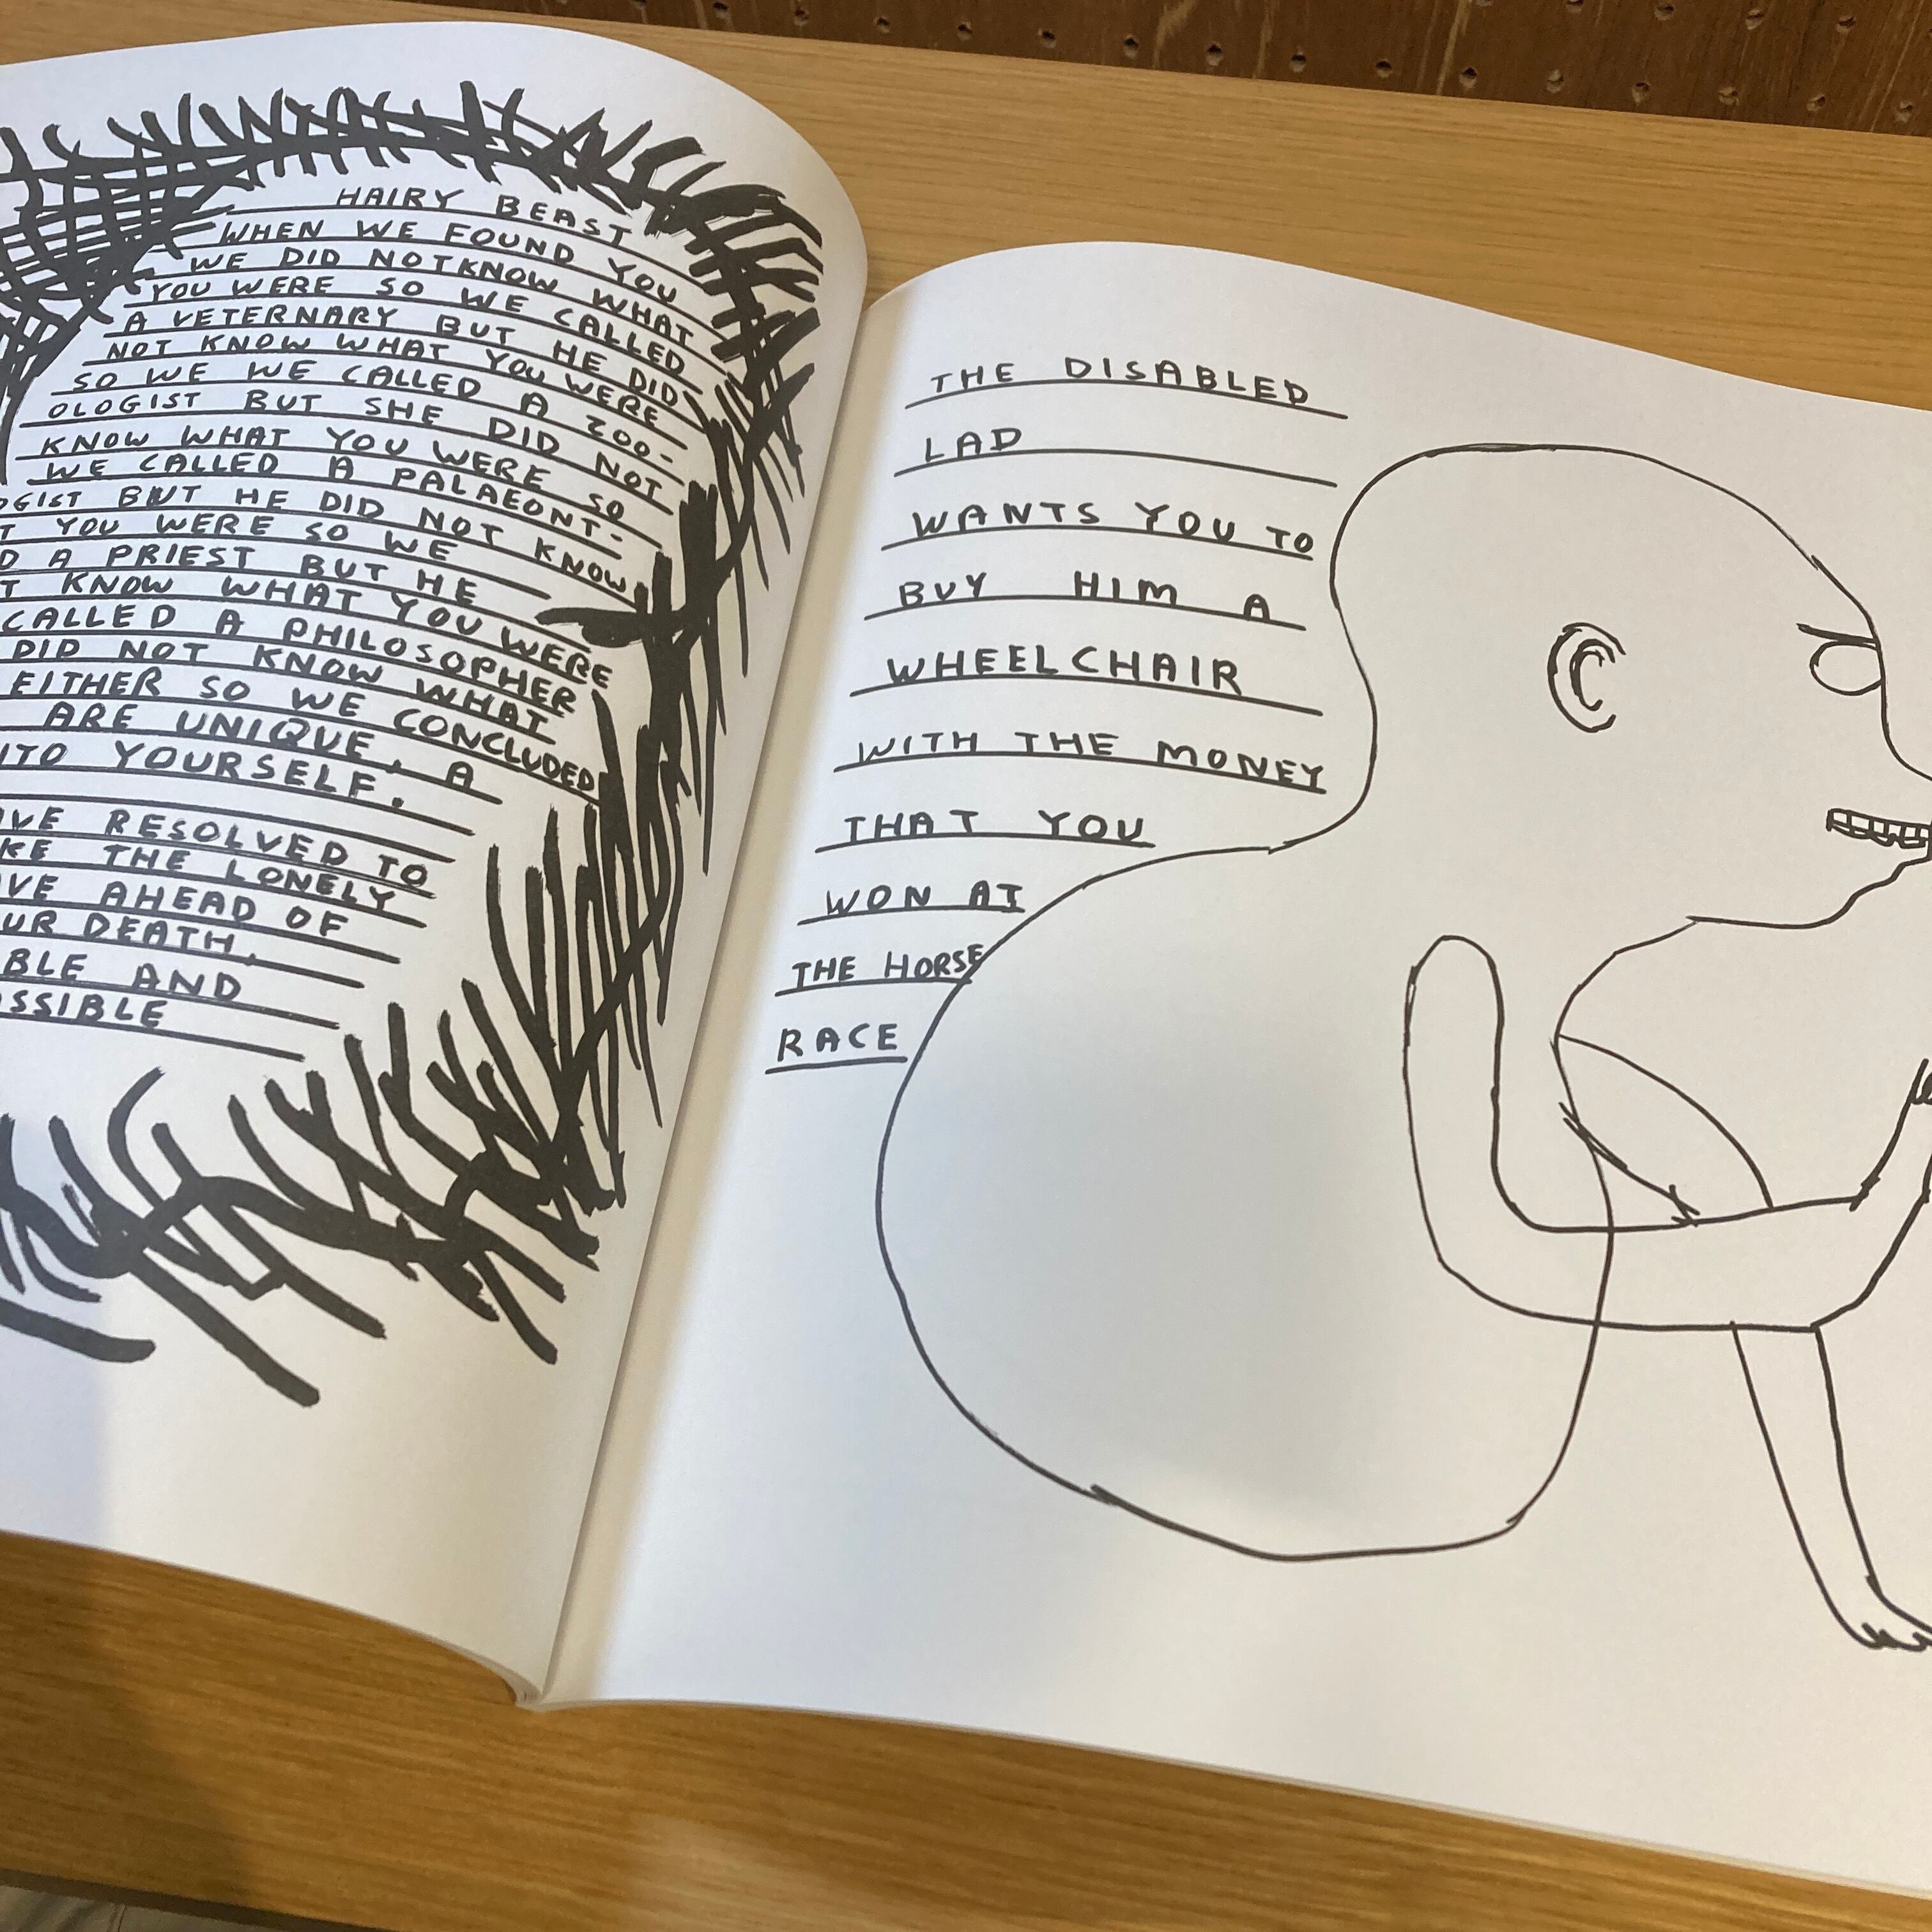 HAIRY BEAST
WHEN WE FOUND YOU
WE DID NOT KNOW WHAT
YOU WERE SO WE CALLED
A VETERNARY BUT HE DID
NOT KNOW WHAT YOU WERE
SO WE WE CALLED A ZOO-
OLOGIST BUT SHE DID NOT
KNOW WHAT YOU WERE SO
WE CALLED A PALAEONT-
OGIST BUT HE DID NOT KNOW
T YOU WERE SO WE
D A PRIEST BUT HE
T KNOW WHAT YOU WERE
CALLED A PHILOSOPHER
DID NOT KNOW WHAT
EITHER SO WE CONCLUDED
ARE UNIQUE, A
TO YOURSELF.
VE RESOLVED TO
KE THE LONELY
VE AHEAD OF
UR DEATH.
BLE AND
SSIBLE
THE DISABLED
LAD
WANTS YOU TO
BUY HIM A
WHEELCHAIR
WITH THE MONEY
THAT YOU
WON AT
THE HORSE
RACE